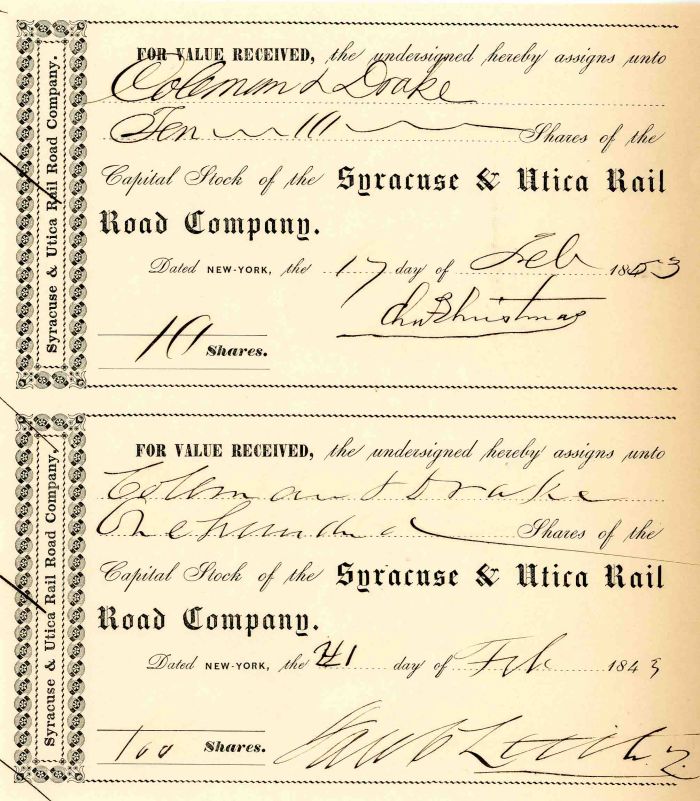 Syracuse & Utica Rail Road Company.
FOR VALUE RECEIVED, the undersigned hereby assigns unto
Coleman & Drake
Ten 10 Shares of the
Capital Stock of the Syracuse & Utica Rail
Road Company.
Dated NEW-YORK, the 17 day of Feb 1843
Christmas
10 Shares.
Syracuse & Utica Rail Road Company.
FOR VALUE RECEIVED, the undersigned hereby assigns unto
Coleman & Drake
One hundred Shares of the
Capital Stock of the Syracuse & Utica Rail
Road Company.
Dated NEW-YORK, the 21 day of Feb 1843
100 Shares.